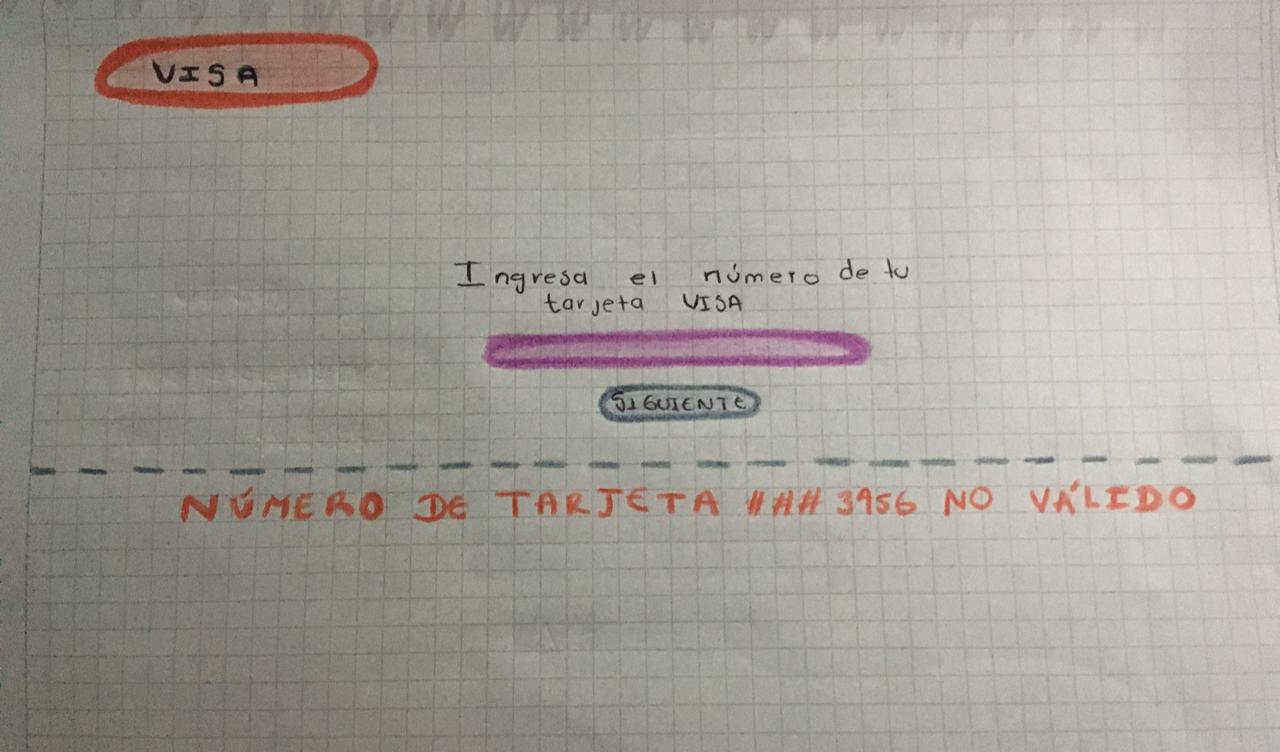 VISA
Ingresa el número de tu
tarjeta VISA
SIGUIENTE
NÚMERO DE TARJETA ### 3956 NO VÁLIDO